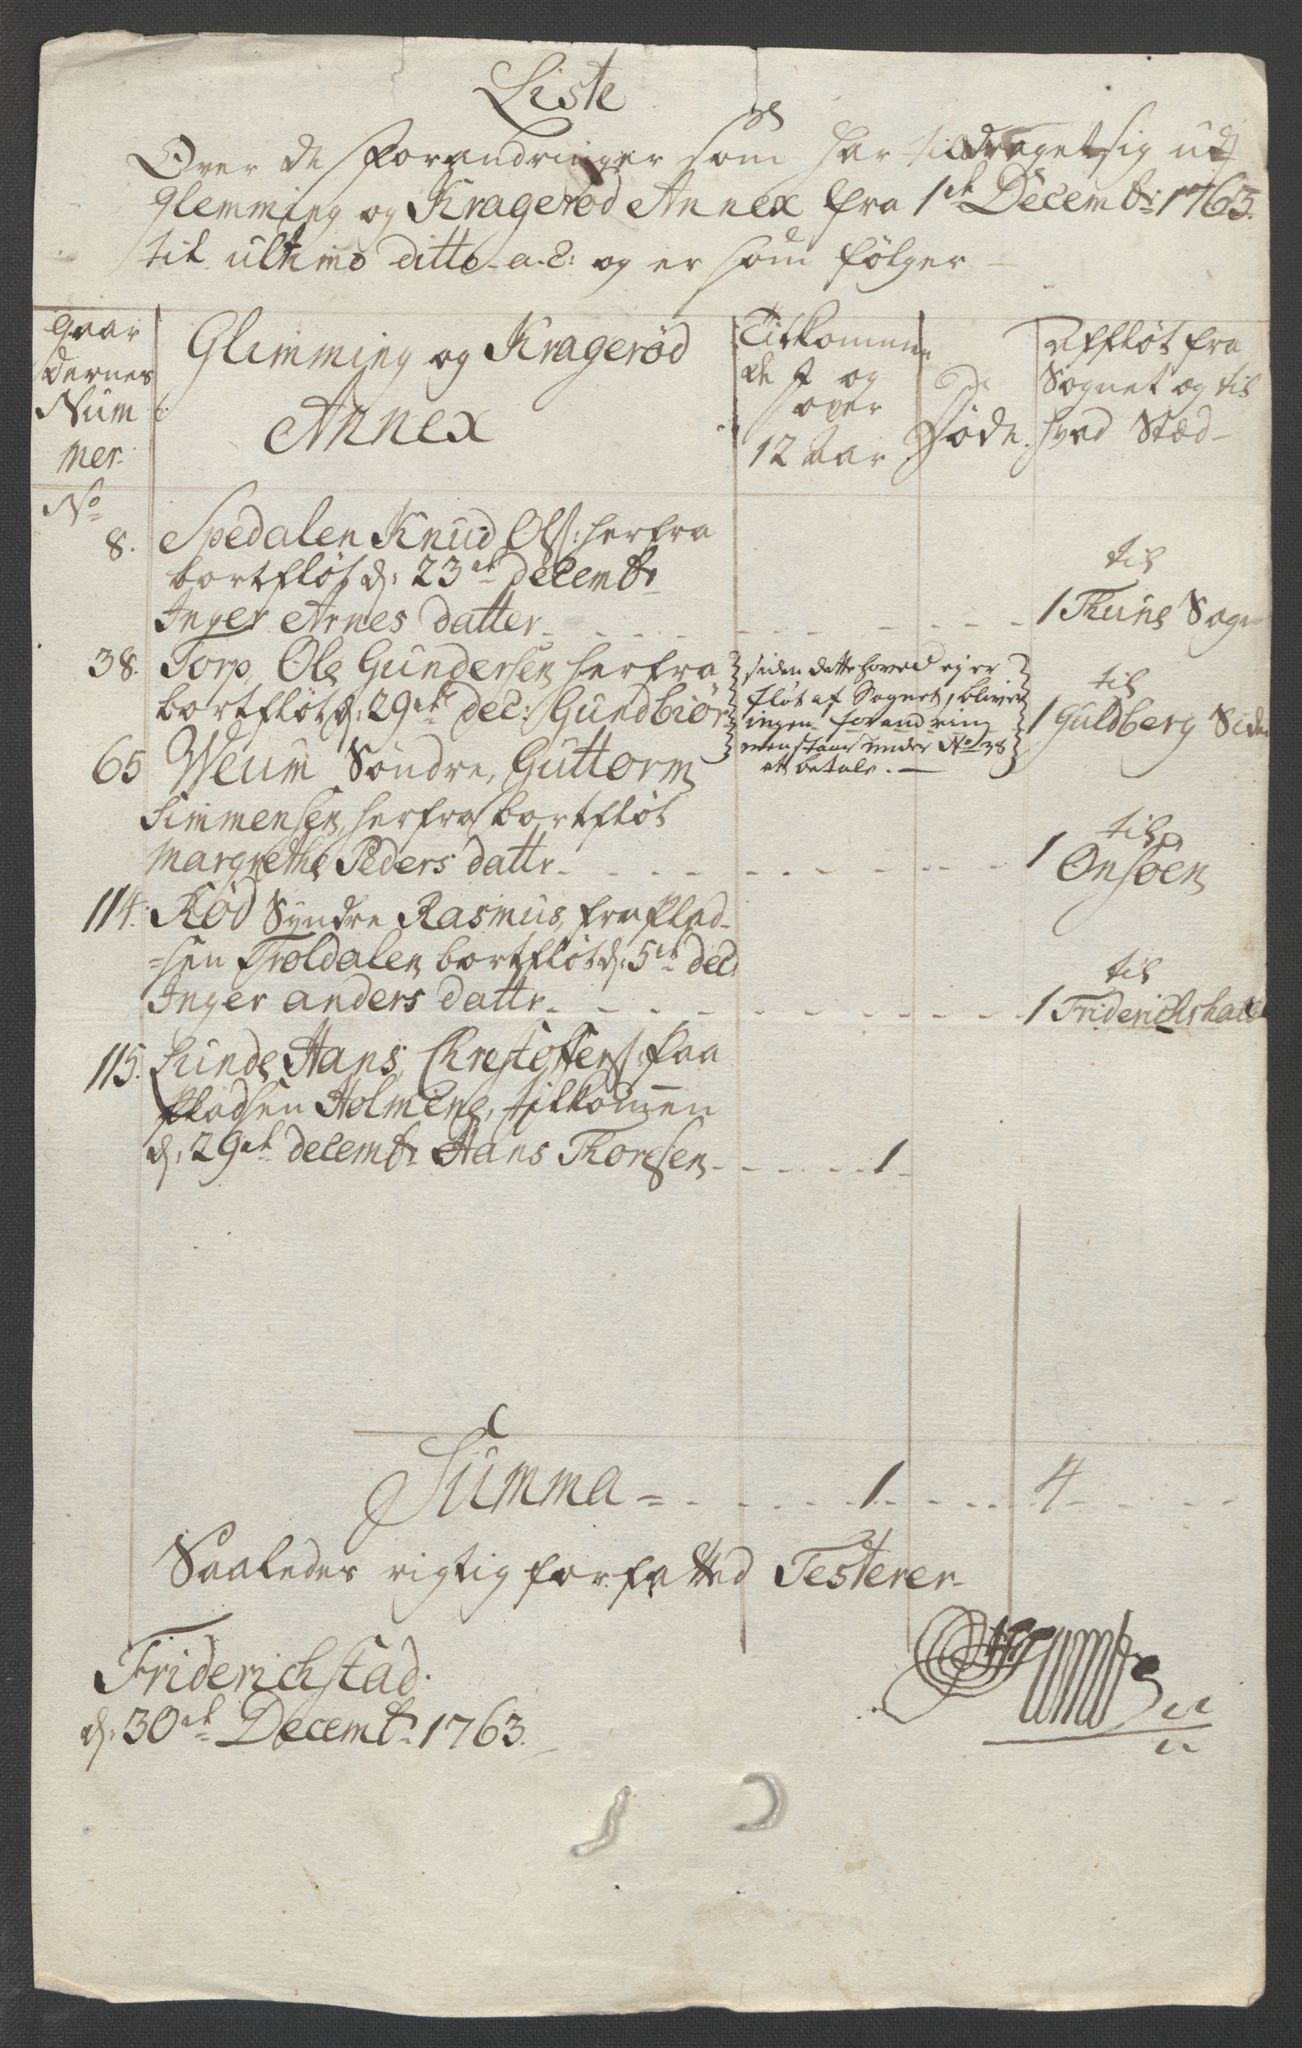 Liste
Over de forandringer som har tildraget sig udj
Glemming og Kragerød Annex fra 1te Decembr: 1763.
til ultimo ditto a.c: og er som følger
Gaar
dernes
Num
mer.
Glimming og Kragerød
Annex
Tilkomne
de og
over
12 Aar
Døde.
Affløt fra
Sognet og til
hvad Stæd
No
8. Spedalen Knud Ols: herfra
bortfløt d: 23de decembr
Inger Arnes datter
til
1 Thune Sogn
38. Torp, Ole Gundersen herfra
bortfløt d: 29de dec: Gundbiør
siden dette hoved ej er
fløt af Sognet, bliver
ingen forandring
men staar under No 38
at betale.
til
1 Guldberg Siden
65 Weum Søndre, Guttorm
Simmensen, herfra bortfløt
Margrethe Peders dattr
til
1 Onsøen
114. Rød Syndre Rasmus, fra Plad-
-sen Troldalen bortfløt d: 5te dec.
Inger anders dattr
til
1 Friderichshald
115. Lunde Hans Chrestoffers: paa
Pladsen Holmene, tilkommen
d: 29de decembr Hans Thoresen 1
Summa = 1 4
Saaledes rigtig forfatted Testerer
Friderichstad.
d: 30te Decembr 1763.